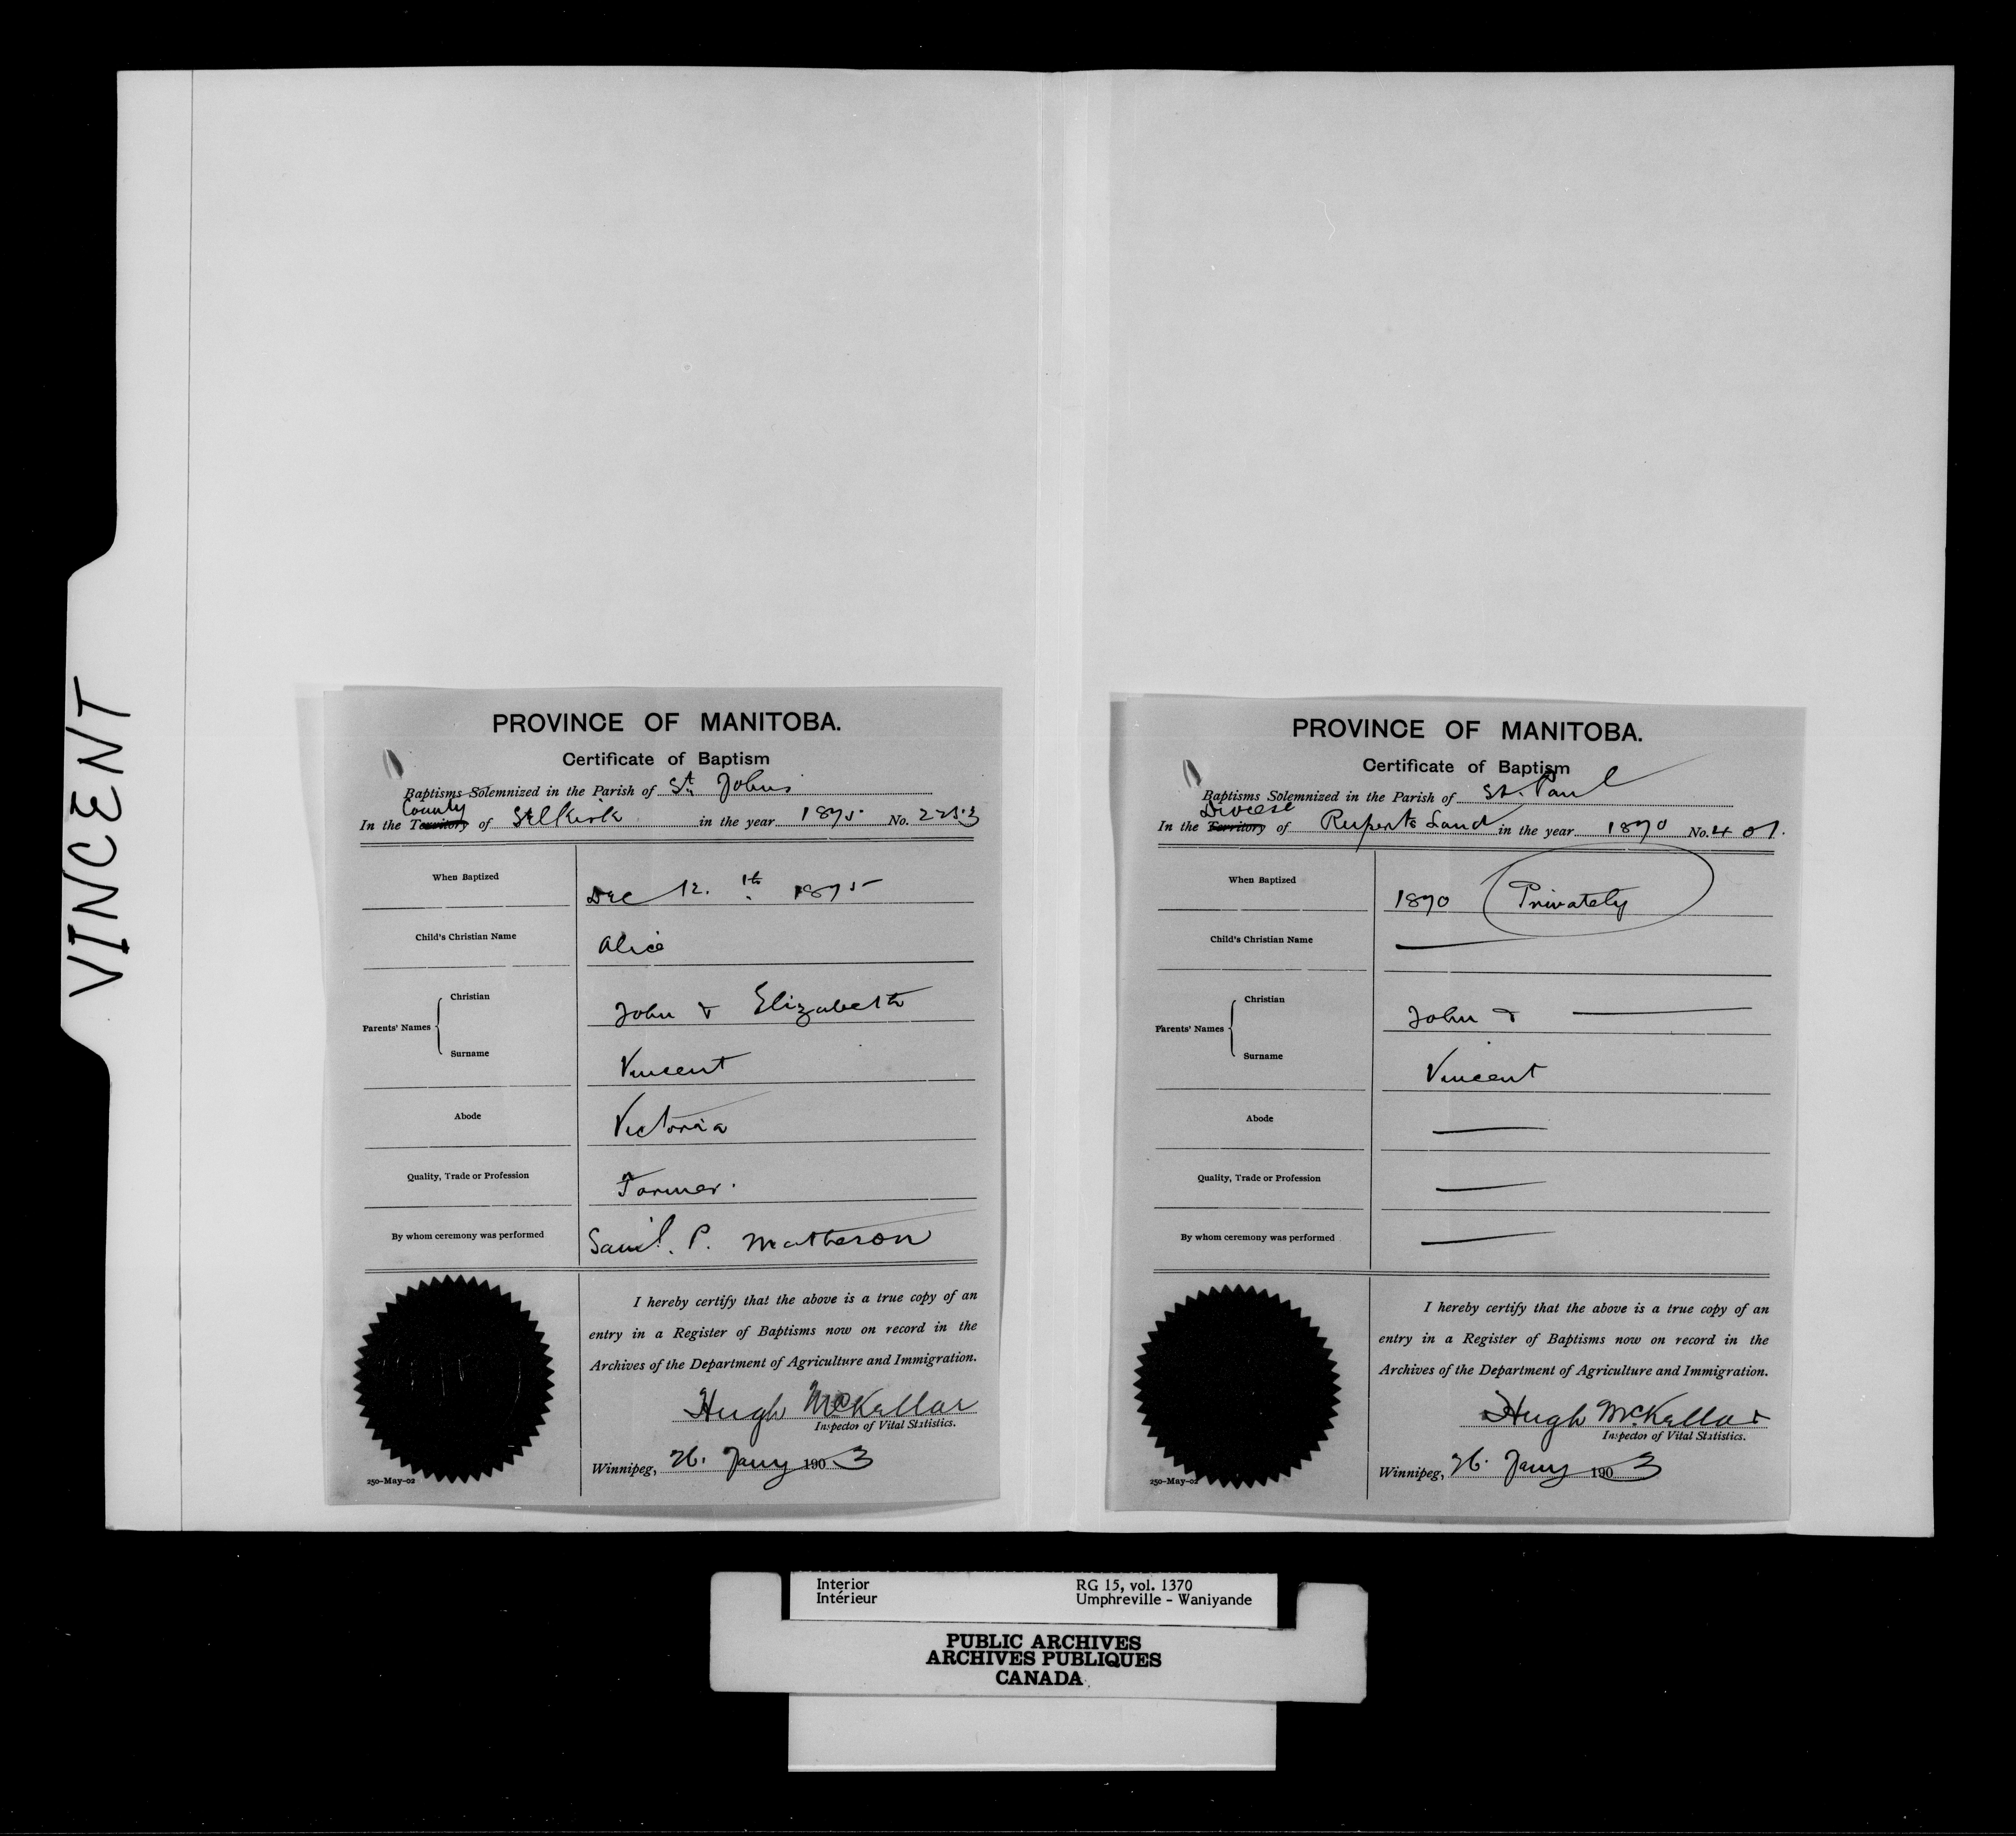 VINCENT
PROVINCE OF MANITOBA.
Certificate of Baptism
Baptisms Solemnized in the Parish of St Johns
County
In the Territory of Selkirk in the year 1875 No. 2253
When Baptized Dec 12.th 1875
Child's Christian Name Alice
Parents' Names
Christian John & Elizabeth
Surname Vincent
Abode Victoria
Quality, Trade or Profession Farmer.
By whom ceremony was performed Saml. P. Matheson
I hereby certify that the above is a true copy of an
entry in a Register of Baptisms now on record in the
Archives of the Department of Agriculture and Immigration.
Hugh McKellar
Inspector of Vital Statistics.
Winnipeg, 26. Jany 1903
250-May-02
PROVINCE OF MANITOBA.
Certificate of Baptism
Baptisms Solemnized in the Parish of St. Paul
Diocese
In the Territory of Ruperts Land in the year 1870 No. 401.
When Baptized 1870 Privately
Child's Christian Name —
Parents' Names
Christian John & —
Surname Vincent
Abode —
Quality, Trade or Profession —
By whom ceremony was performed —
I hereby certify that the above is a true copy of an
entry in a Register of Baptisms now on record in the
Archives of the Department of Agriculture and Immigration.
Hugh McKellar
Inspector of Vital Statistics.
Winnipeg, 26. Jany 1903
250-May-02
Interior RG 15, vol. 1370
Intérieur Umphreville - Waniyande
PUBLIC ARCHIVES
ARCHIVES PUBLIQUES
CANADA